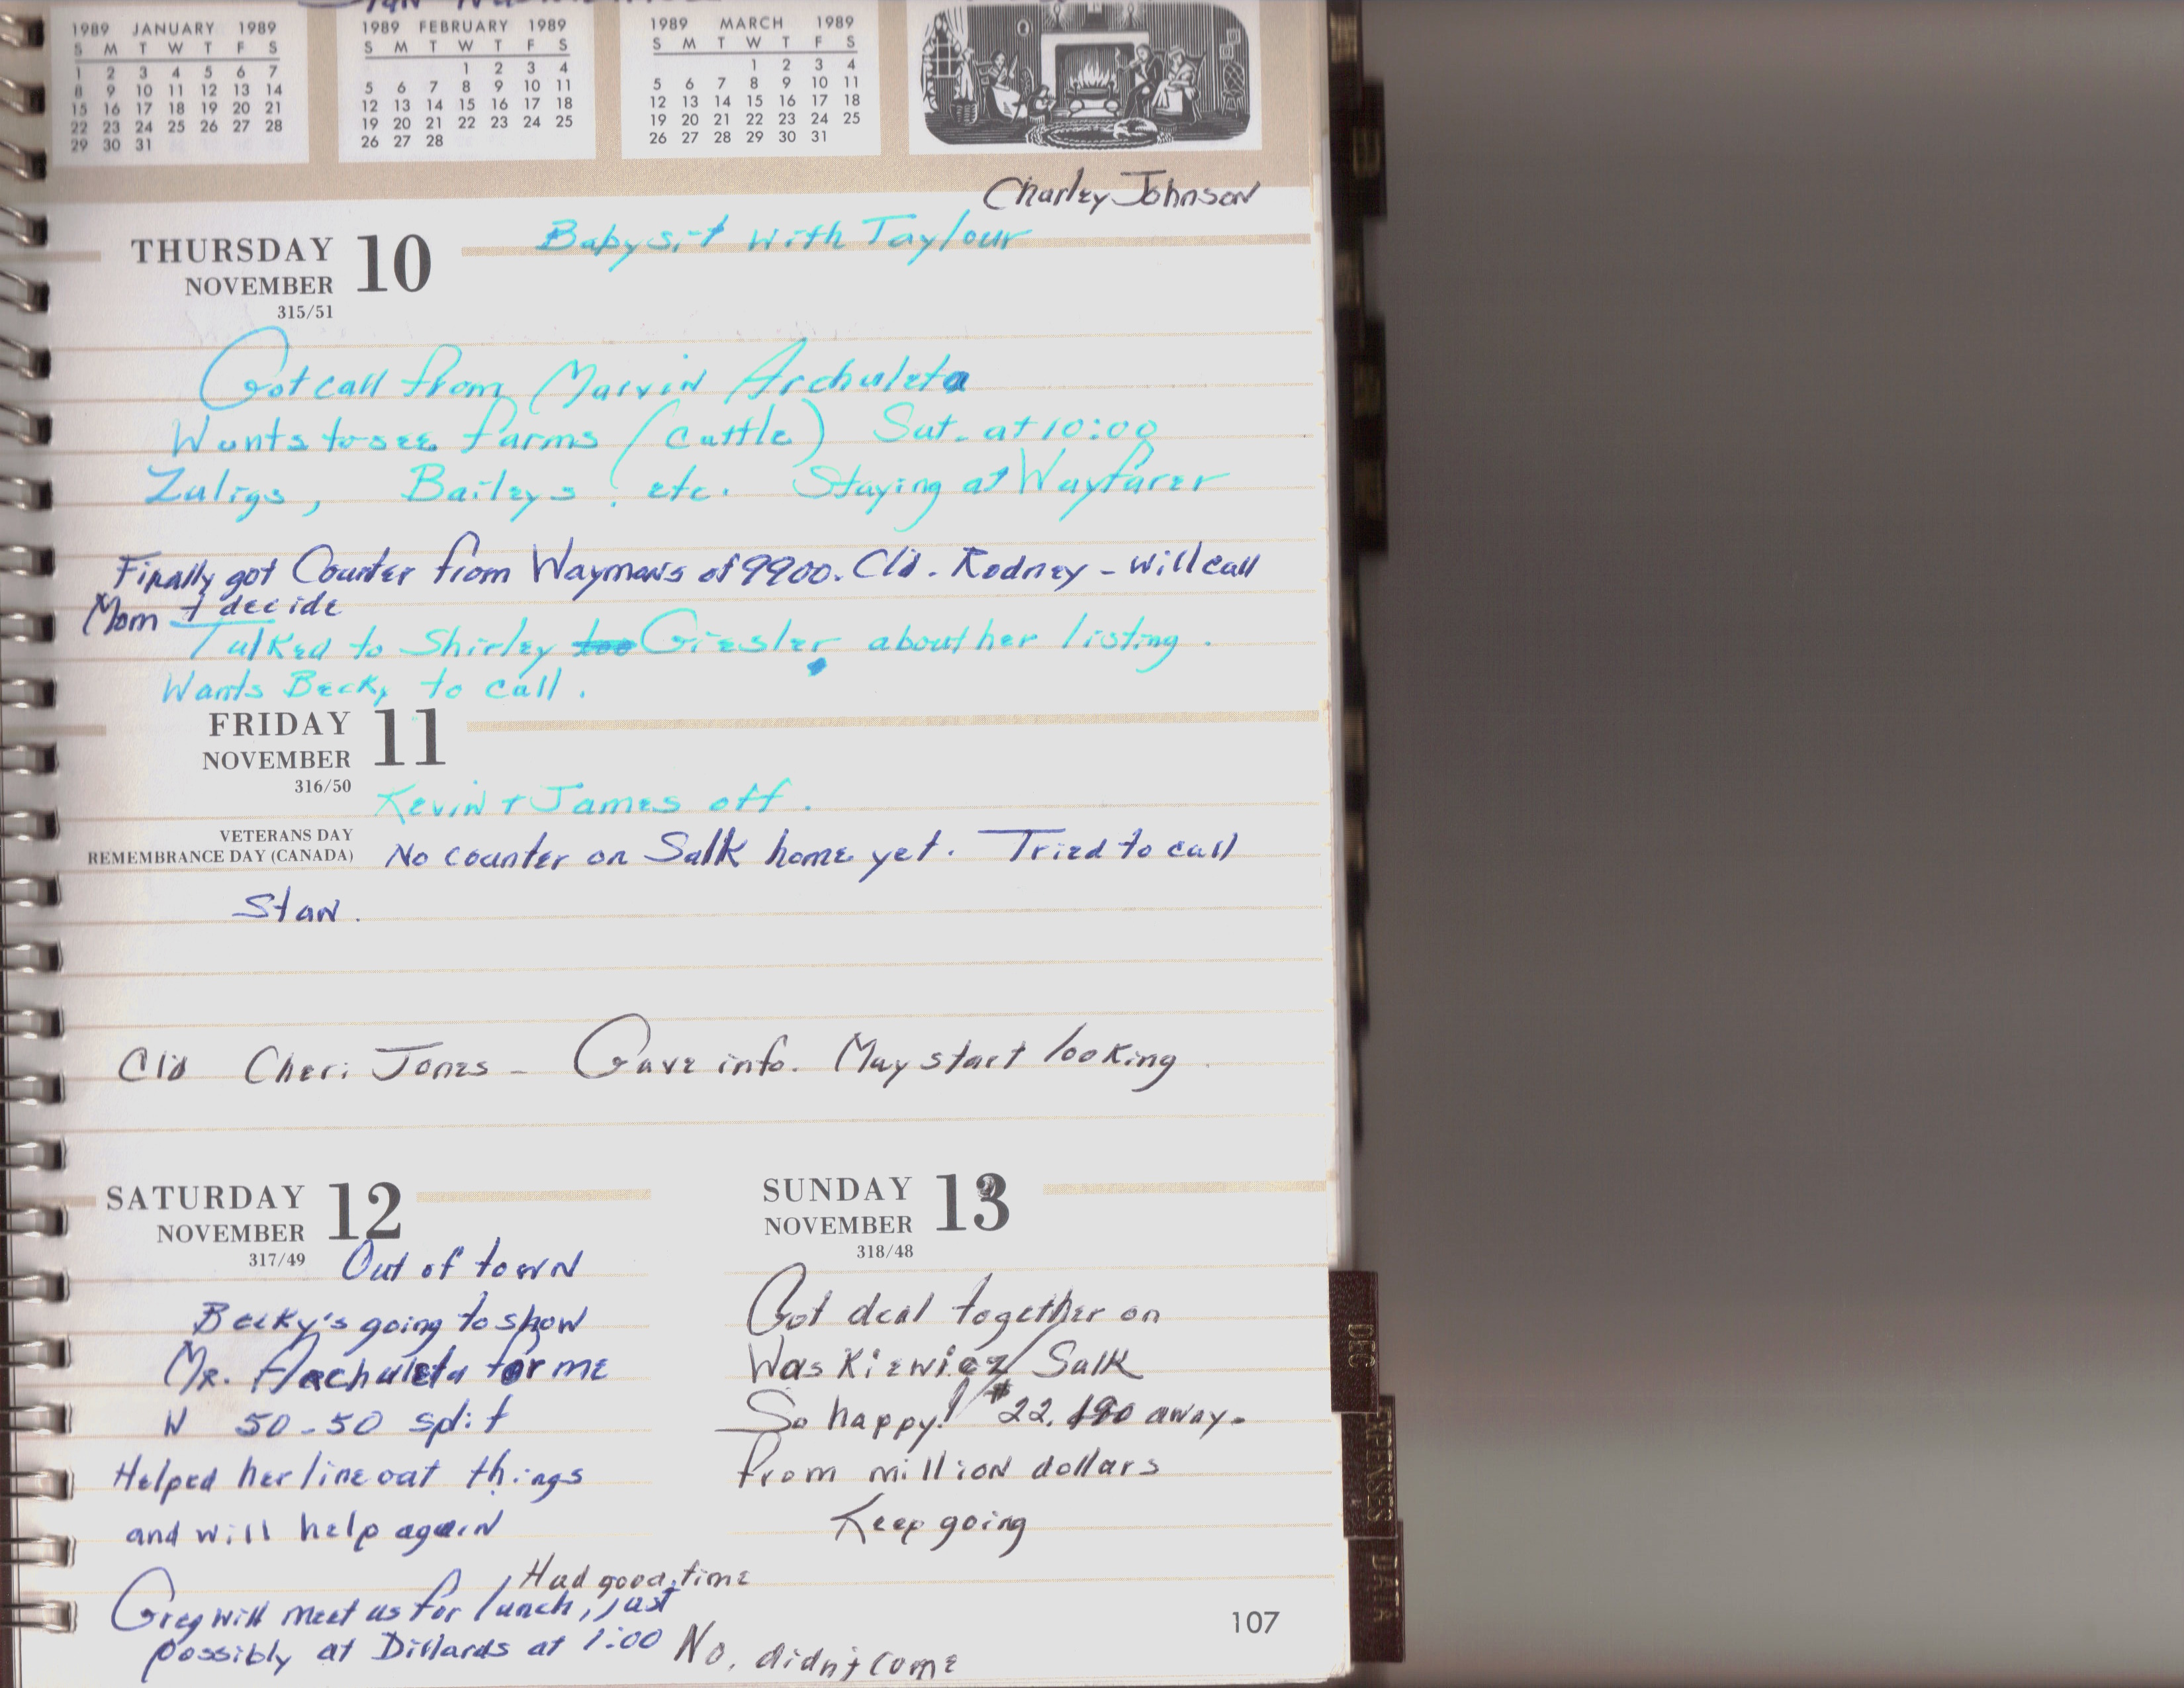 1989 JANUARY 1989
S M T W T F S
1 2 3 4 5 6 7
8 9 10 11 12 13 14
15 16 17 18 19 20 21
22 23 24 25 26 27 28
29 30 31
1989 FEBRUARY 1989
S M T W T F S
1 2 3 4
5 6 7 8 9 10 11
12 13 14 15 16 17 18
19 20 21 22 23 24 25
26 27 28
1989 MARCH 1989
S M T W T F S
1 2 3 4
5 6 7 8 9 10 11
12 13 14 15 16 17 18
19 20 21 22 23 24 25
26 27 28 29 30 31
Charley Johnson
Babysit with Taylour
THURSDAY 10
NOVEMBER
315/51
Got call from Marvin Archuleta
Wants to see farms (cattle) Sat. at 10:00
Zuligs, Baileys, etc. Staying at Wayfarer
Finally got Counter from Waymans of 9900. Cld. Rodney - will call
Mom + decide
Talked to Shirley Giesler about her listing.
Wants Becky to call.
FRIDAY 11
NOVEMBER
316/50
Kevin + James off.
VETERANS DAY
REMEMBRANCE DAY (CANADA)
No counter on Salk home yet. Tried to call
Stan.
Cld Cheri Jones - Gave info. May start looking.
SATURDAY 12
NOVEMBER
317/49
Out of town
Becky's going to show
Mr. Archuleta for me
N 50-50 split
Helped her line out things
and will help again
Had good time
Greg will meet us for lunch, just
possibly at Dillards at 1:00
No, didn't come
SUNDAY 13
NOVEMBER
318/48
Got deal together on
Waskiewicz/Salk
So happy! $22, away.
from million dollars
Keep going
107
DEC
EXPENSES
DATA